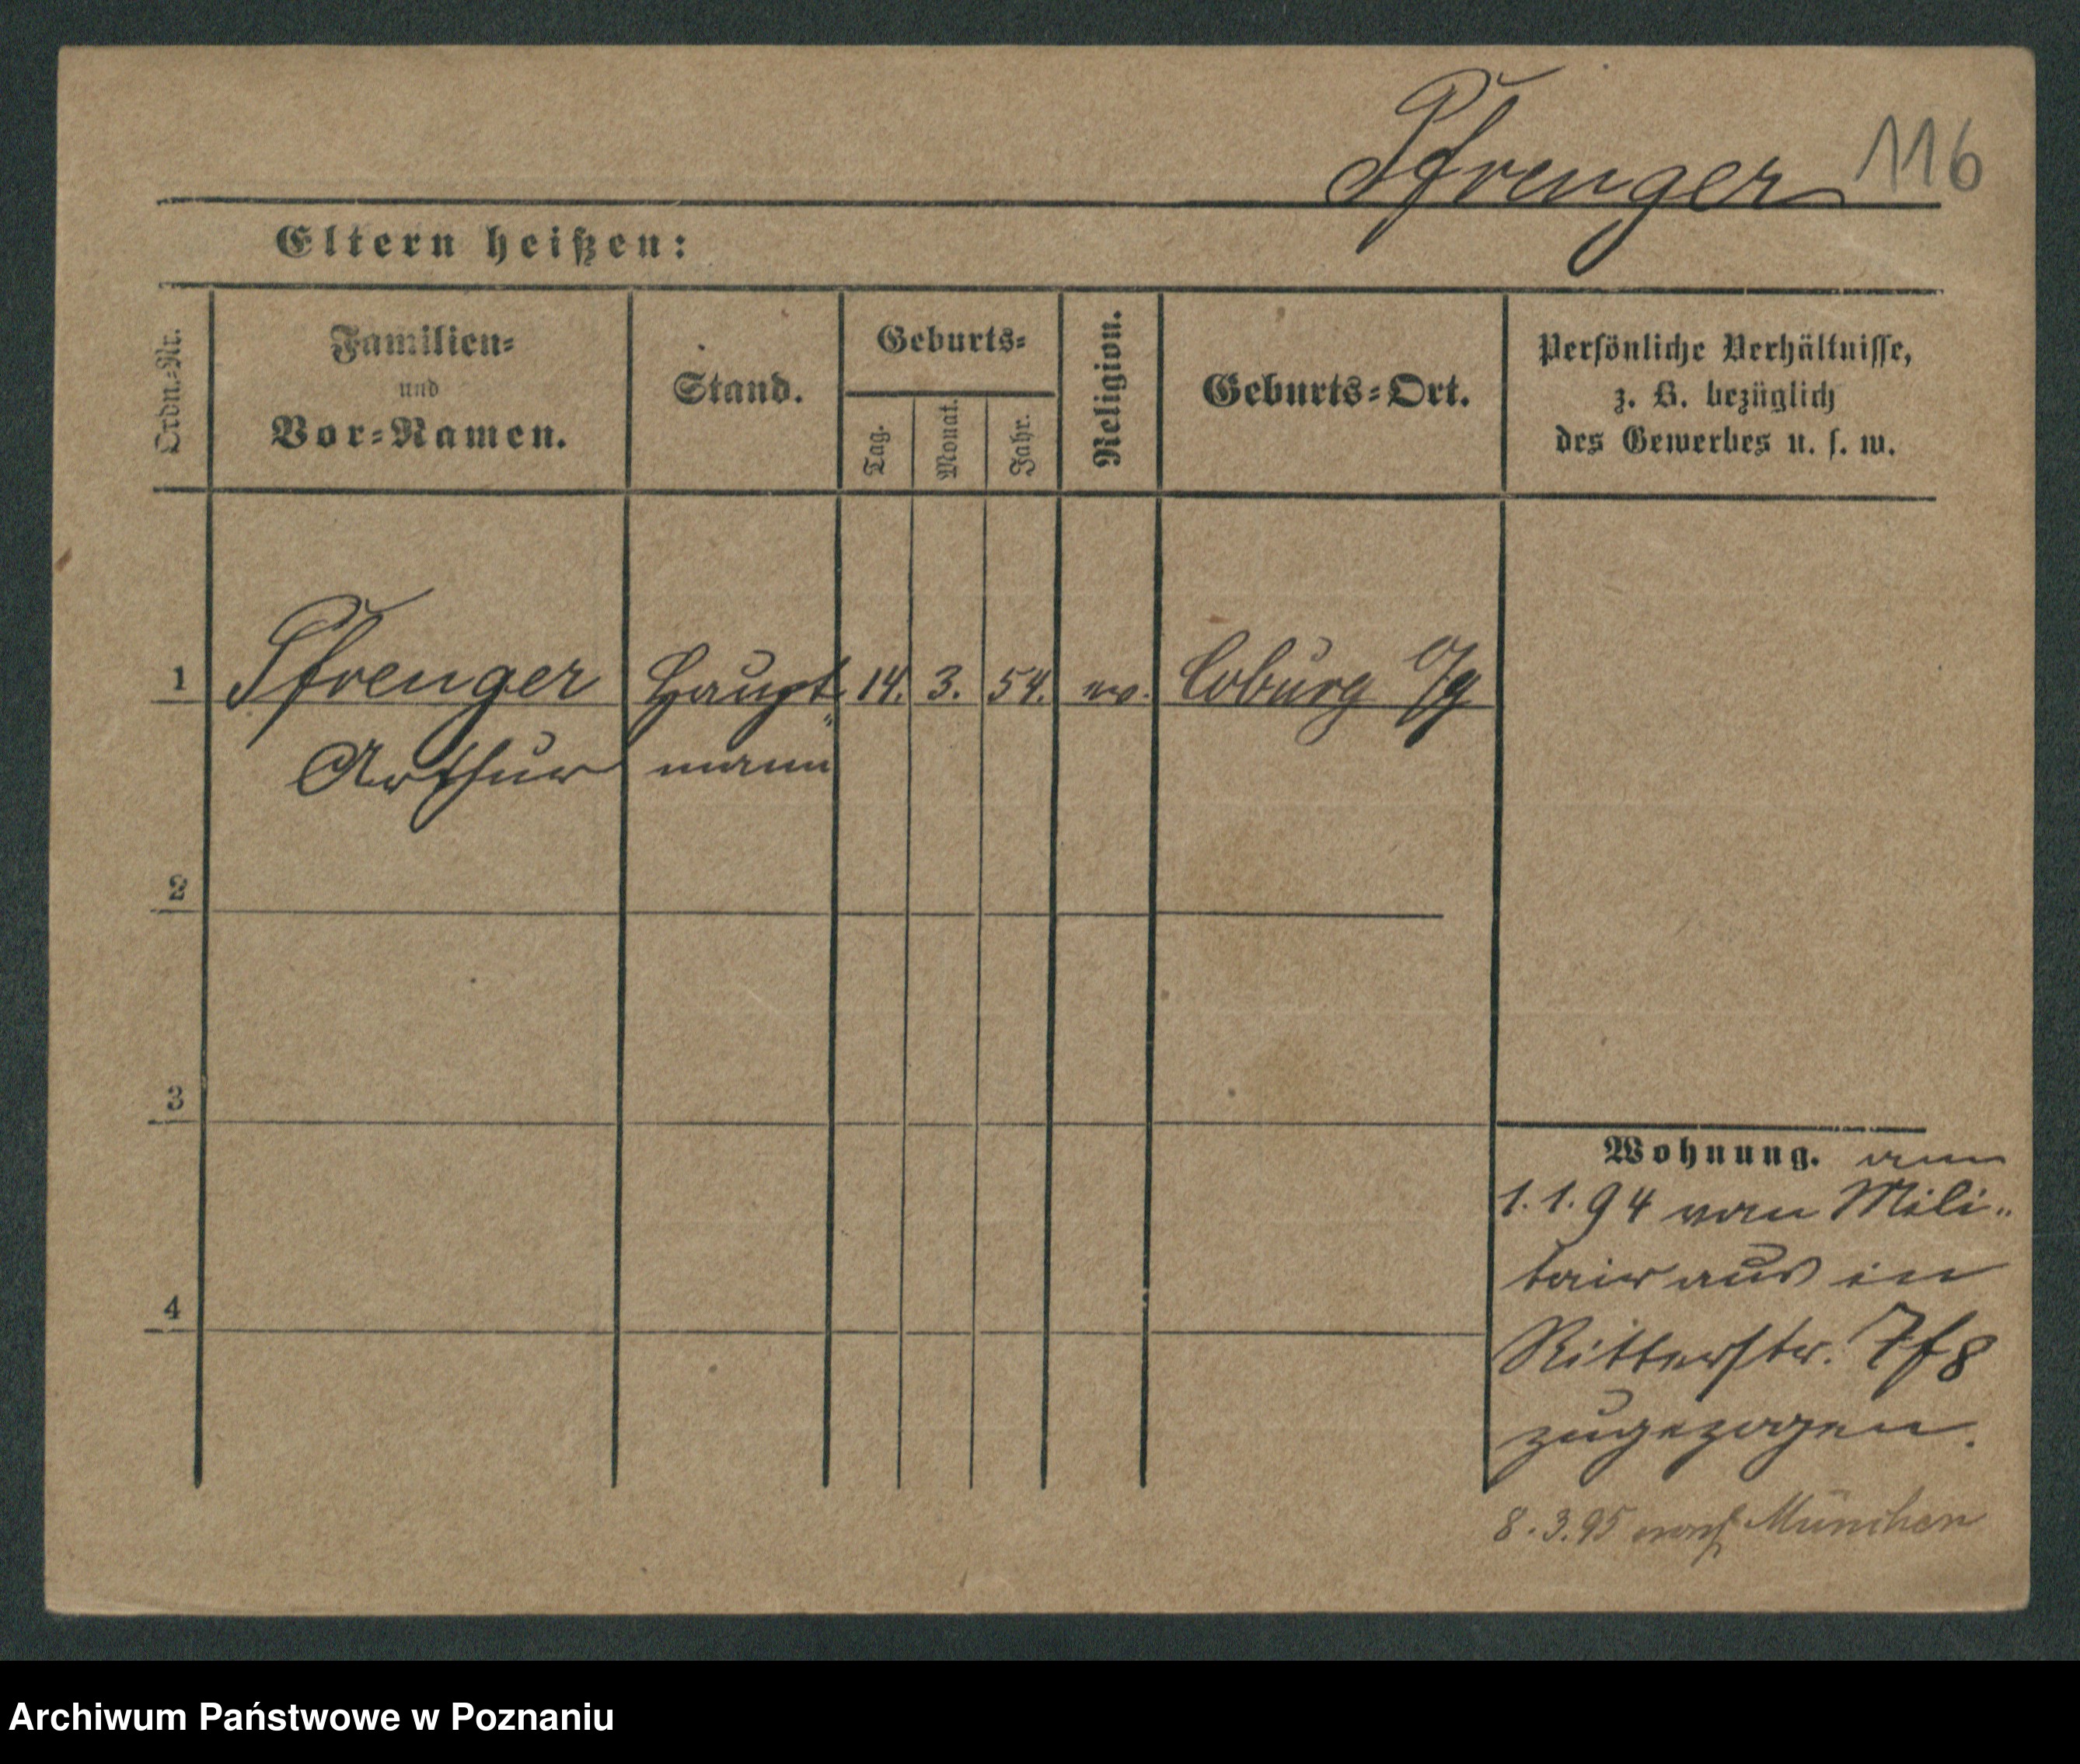 Pfrenger 116
Eltern heißen:
Ordn.-Nr.
Familien-
und
Vor-Namen.
Stand.
Geburts-
Tag.
Monat.
Jahr.
Religion.
Geburts-Ort.
Persönliche Verhältnisse,
z. B. bezüglich
des Gewerbes u. s. w.
1 Pfrenger Haupt- 14. 3. 54. ev. Coburg
Arthur mann
2
3
4
Wohnung. am
1. 1. 94 vom Mili-
tair aus in
Ritterstr. 7/8
zugezogen.
8. 3. 95 nach München
Archiwum Państwowe w Poznaniu